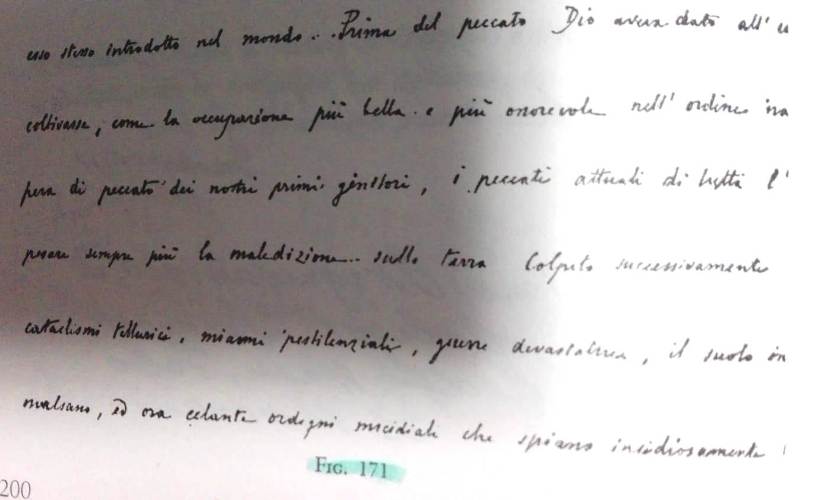 esso stesso introdotto nel mondo... Prima del peccato Dio aveva dato all'u
coltivasse, come la occupazione più bella e più onorevole nell'ordine na
pena di peccato dei nostri primi genitori, i peccati attuali di tutta l'
pesare sempre più la maledizione... sulla terra Colpito successivamente
cataclismi tellurici, miasmi pestilenziali, guerre devastatrici, il suolo in
malsano, ed ora celante ordegni micidiali che spiano insidiosamente
FIG. 171
200